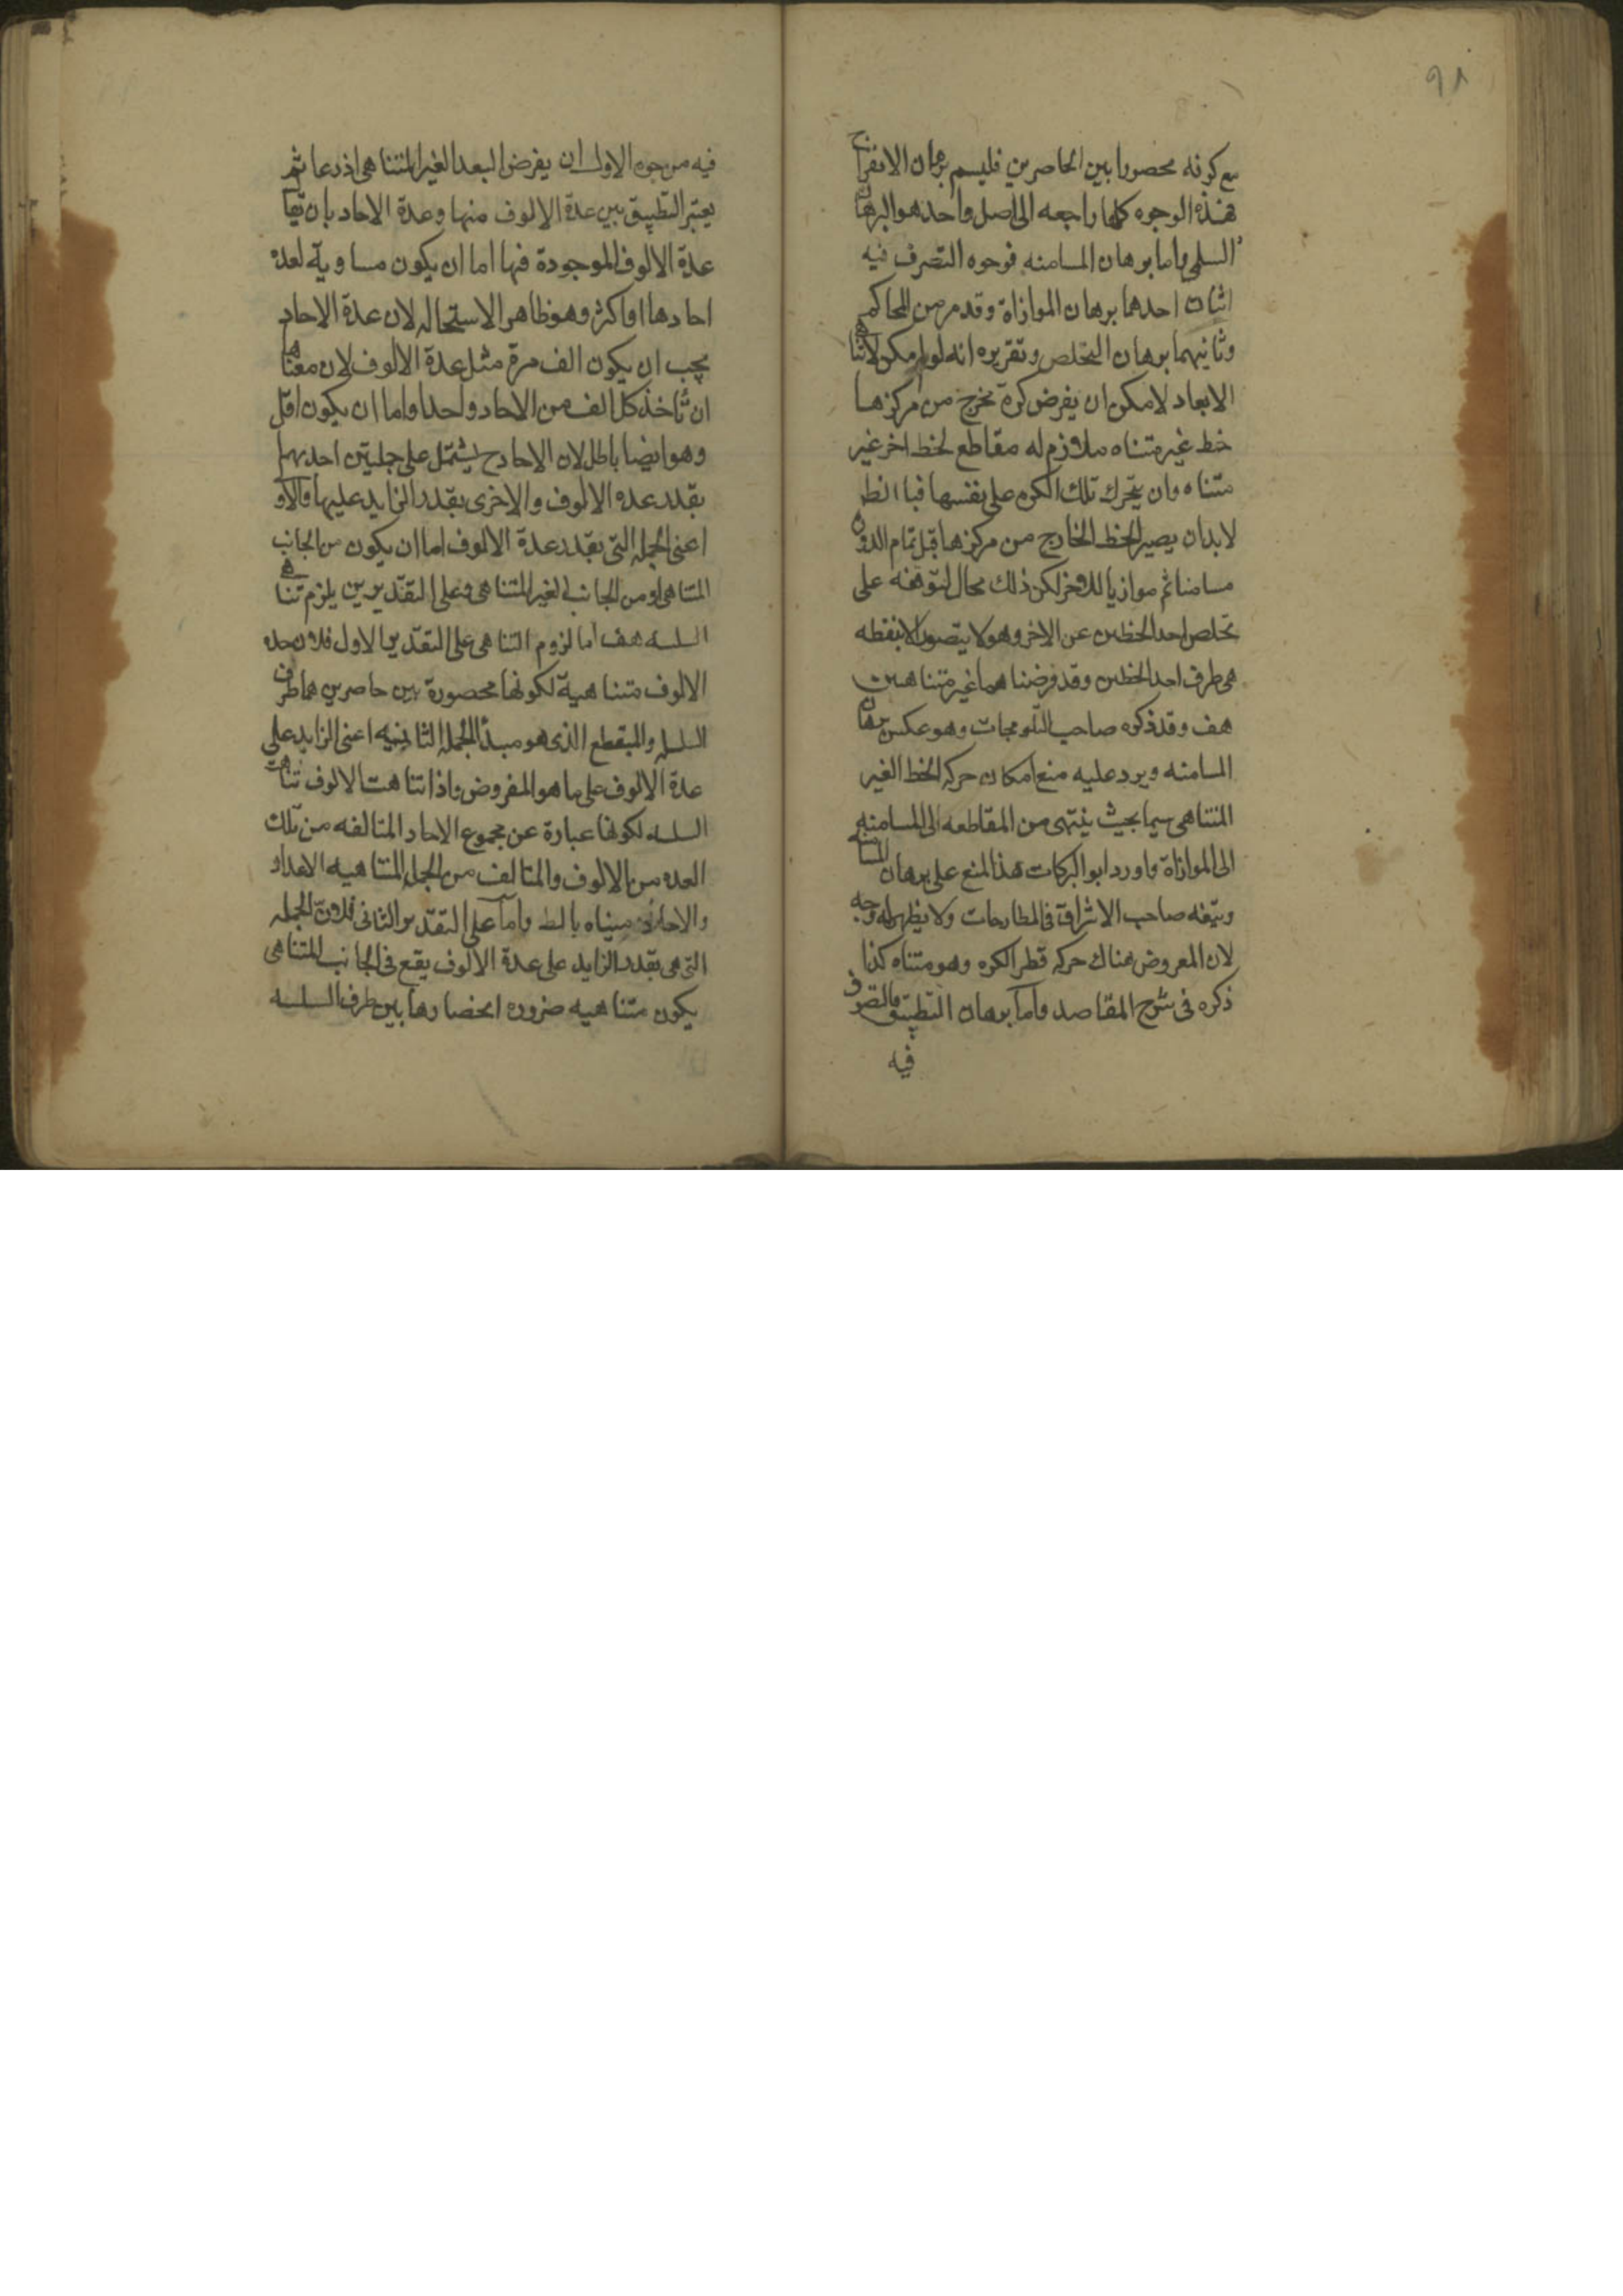 ٩٨
مع كونه محصورا بين الحاصرين فليسم برهان الانفراج
فهذه الوجوه كلها راجعه الى اصل واحد هو البرهان
السلمى واما برهان المسامته فوجوه التصرف فيه
اثنان احدهما برهان الموازاة وقد مر من المحاكم
وثانيهما برهان التخلص وتقريره انه لو امكن لاتناهى
الابعاد لامكن ان يفرض كرة يخرج من مركزها
خط غير متناه ملازم له مقاطع لخط اخر غير
متناه وان يتحرك تلك الكره على نفسها فبا الط
لابد ان يصير الخط الخارج من مركزها قبل تمام الدورة
مسامتا ثم موازيا للاخر لكن ذلك محال لتوقفه على
تخلص احد الخطين عن الاخر وهو لا يتصور الا بنقطه
هى طرف احد الخطين وقد فرضناهما غير متناهيين
هف وقد ذكره صاحب التلويحات وهو عكس برهان
المسامته ويرد عليه منع امكان حركه الخط الغير
المتناهى سيما بحيث ينتهى من المقاطعه الى المسامته
الى الموازاة واورد ابو البركات هذا المنع على برهان المسامته
وتبعه صاحب الاشراق فى المطارحات ولا يظهر له وجه
لان المفروض هناك حركه قطر الكره وهو متناه كذا
ذكره فى شرح المقاصد واما برهان التطبيق فالتصرف
فيه
فيه من وجوه الاول ان يفرض البعد الغير المتناهى اذرعا ثم
يعتبر التطبيق بين عدة الالوف منها وعدة الاحاد بان يقا
عدة الالوف الموجودة فيها اما ان يكون مساوية لعدة
احادها او اكثر وهو ظاهر الاستحاله لان عدة الاحاد
يجب ان يكون الف مرة مثل عدة الالوف لان معناها
ان ناخذ كل الف من الاحاد واحدا واما ان يكون اقل
وهو ايضا باطل لان الاحاد ح يشتمل على جملتين احديهما
بقدر عده الالوف والاخرى بقدر الزايد عليها والاو
اعنى الجمله التى بقدر عدة الالوف اما ان يكون من الجانب
المتناهى او من الجانب الغير المتناهى وعلى التقديرين يلزم تناهى
السلسه هف اما لزوم التناهى على التقدير الاول فلان عده
الالوف متناهية لكونها محصورة بين حاصرين هما طرف
السلسه والمقطع الذى هو مبدأ الجمله الثانيه اعنى الزايد على
عدة الالوف على ما هو المفروض واذا تناهت الالوف تناهت
السلسه لكونها عبارة عن مجموع الاحاد المتالفه من تلك
العده من الالوف والمتالف من الجمل المتناهيه الاعداد
والاحاد متناه بالط واما على التقدير الثانى فلان الجمله
التى هى بقدر الزايد على عدة الالوف يقع فى الجانب المتناهى
يكون متناهيه ضروره انحصارها بين طرف السلسه